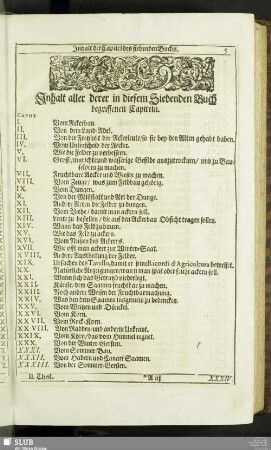 Inhalt der Capitel des siebenden Buchs. 5
Inhalt aller derer in diesem Siebenden Buch
begriffenen Capiteln.
CAPUT
I. Vom Ackerbau.
II. Von dem Land-Adel.
III. Von der Freyheit der Ackerleute, so sie bey den Alten gehabt haben.
IV. Vom Unterschied der Aecker.
V. Wie die Felder zu verbessern.
VI. Grosse, und wässerige Gefilde auszutrocknen / und zu
machen.
VII. Fruchtbare Aecker und Wiesen zu machen.
VIII. Vom Zeuge / was zum Feldbau gehörig.
IX. Vom Dungen.
X. Von der Miststatt und Art der Dunge.
XI. die Felder zu dungen.
XII. Vom Viehe / damit man ackern soll.
XIII. Leute zu bestellen / die auf den Ackerbau Obsicht tragen sollen.
XIV. Wann das Feld zu
XV. Wie das Feld zu ackern.
XVI. Vom Nutzen des Ackerns.
XVII. Wie offt man ackert zur Winter-Saat.
XVIII. Andere Austheilung der Felder.
XIX. Ursachen des Tarello, damit er seine Ricordi d'Agricoltura beweiset.
XX. Natürliche Anzeigungen wann man spat oder ackern soll.
XXI. Wann sich das Getraid
XXII. Künste, dem Saamen fruchtbar zu machen.
XXIII. Noch andere Weisen der Fruchtbarmachung.
XXIV. Was bey dem Saamen insgemein zu bedencken.
XXV. Vom Weitzen und Dünckel.
XXVI. Vom Korn.
XXVII. Von Rock-Korn.
XXVIII. Von Radden / und anderm Unkraut.
XXIX. Vom Korn / das vom Himmel regnet.
XXX. Von der Winter Gersten.
XXXI. Vom Sommer-Bau.
XXXII. Vom Habern und Canari Saamen.
XXXIII. Von der Sommer-Gersten.
II. Theil. A iij XXXIV.
SLUB